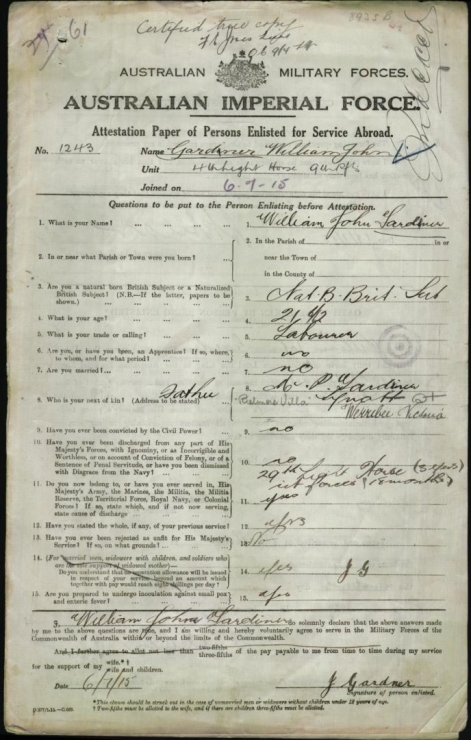 61
Certified true copy
AUSTRALIAN MILITARY FORCES.
AUSTRALIAN IMPERIAL FORCE.
Attestation Paper of Persons Enlisted for Service Abroad.
No. 1243 Name Gardiner William John
Unit 4th Light Horse
Joined on 6-7-15
Questions to be put to the Person Enlisting before Attestation.
1. What is your Name? ... ... ... 1. William John Gardiner
2. In or near what Parish or Town were you born? ... 2. In the Parish of in or
near the Town of
in the County of
3. Are you a natural born British Subject or a Naturalized
British Subject? (N.B.—If the latter, papers to be
shown.) 3. Nat. B. Brit. Sub
4. What is your age? 4. 21
5. What is your trade or calling? 5. Labourer
6. Are you, or have you been, an Apprentice? If so, where,
to whom, and for what period? 6. no
7. Are you married? 7. no
8. Who is your next of kin? (Address to be stated) Father 8. Mr P. Gardiner
Villa St
Werribee Victoria
9. Have you ever been convicted by the Civil Power? 9. no
10. Have you ever been discharged from any part of His
Majesty's Forces, with Ignominy, or as Incorrigible and
Worthless, or on account of Conviction of Felony, or of a
Sentence of Penal Servitude, or have you been dismissed
with Disgrace from the Navy? 10. no
11. Do you now belong to, or have you ever served in, His
Majesty's Army, the Marines, the Militia, the Militia
Reserve, the Territorial Force, Royal Navy, or Colonial
Forces? If so, state which, and if not now serving,
state cause of discharge 11. 29th Light Horse
12. Have you stated the whole, if any, of your previous service? 12. yes
13. Have you ever been rejected as unfit for His Majesty's
Service? If so, on what grounds? 13. No
14. (For married men, widowers with children, and soldiers who
are the sole support of widowed mother)—
Do you understand that no separation allowance will be issued
in respect of your service beyond an amount which
together with pay would reach eight shillings per day? 14. yes J G
15. Are you prepared to undergo inoculation against small pox
and enteric fever? 15. yes
I, William John Gardiner do solemnly declare that the above answers made
by me to the above questions are true, and I am willing and hereby voluntarily agree to serve in the Military Forces of the
Commonwealth of Australia within or beyond the limits of the Commonwealth.
And I further agree to allot not less than two-fifths
three-fifths of the pay payable to me from time to time during my service
for the support of my wife.*†
wife and children.
Date 6/7/15 J Gardner
Signature of person enlisted.
*This clause should be struck out in the case of unmarried men or widowers without children under 18 years of age.
† Two-fifths must be allotted to the wife, and if there are children three-fifths must be allotted.